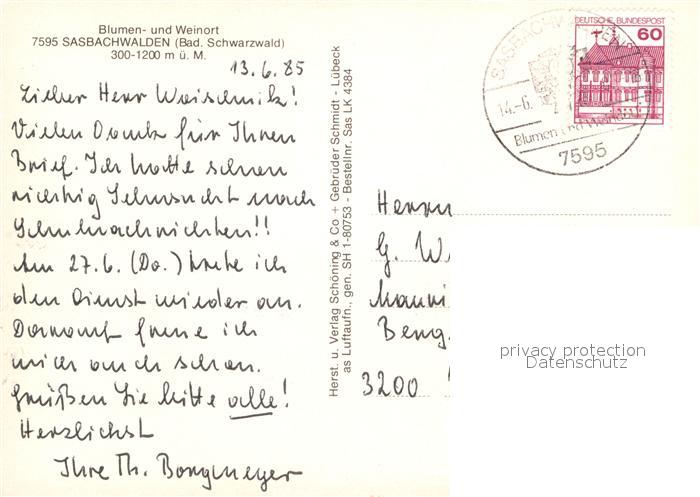 Blumen- und Weinort
7595 SASBACHWALDEN (Bad. Schwarzwald)
300-1200 m ü. M.
13.6.85
Lieber Herr Waischnik!
Vielen Dank für Ihren
Brief. Ich hatte schon
richtig Sehnsucht nach
Schulnachrichten!!
Am 27.6. (Do.) trete ich
den Dienst wieder an.
Darauf freue ich
mich auch schon.
Grüßen Sie bitte alle!
Herzlichst
Ihre Th. Borgmeyer
Herst. u. Verlag Schöning & Co + Gebrüder Schmidt - Lübeck
as Luftaufn., gen. SH 1-80753 - Bestellnr. Sas LK 4384
DEUTSCHE BUNDESPOST
60
SASBACHWALDEN
14.-6.
Blumen und Weindorf
7595
Herrn
G. W
Beng.
3200
privacy protection
Datenschutz